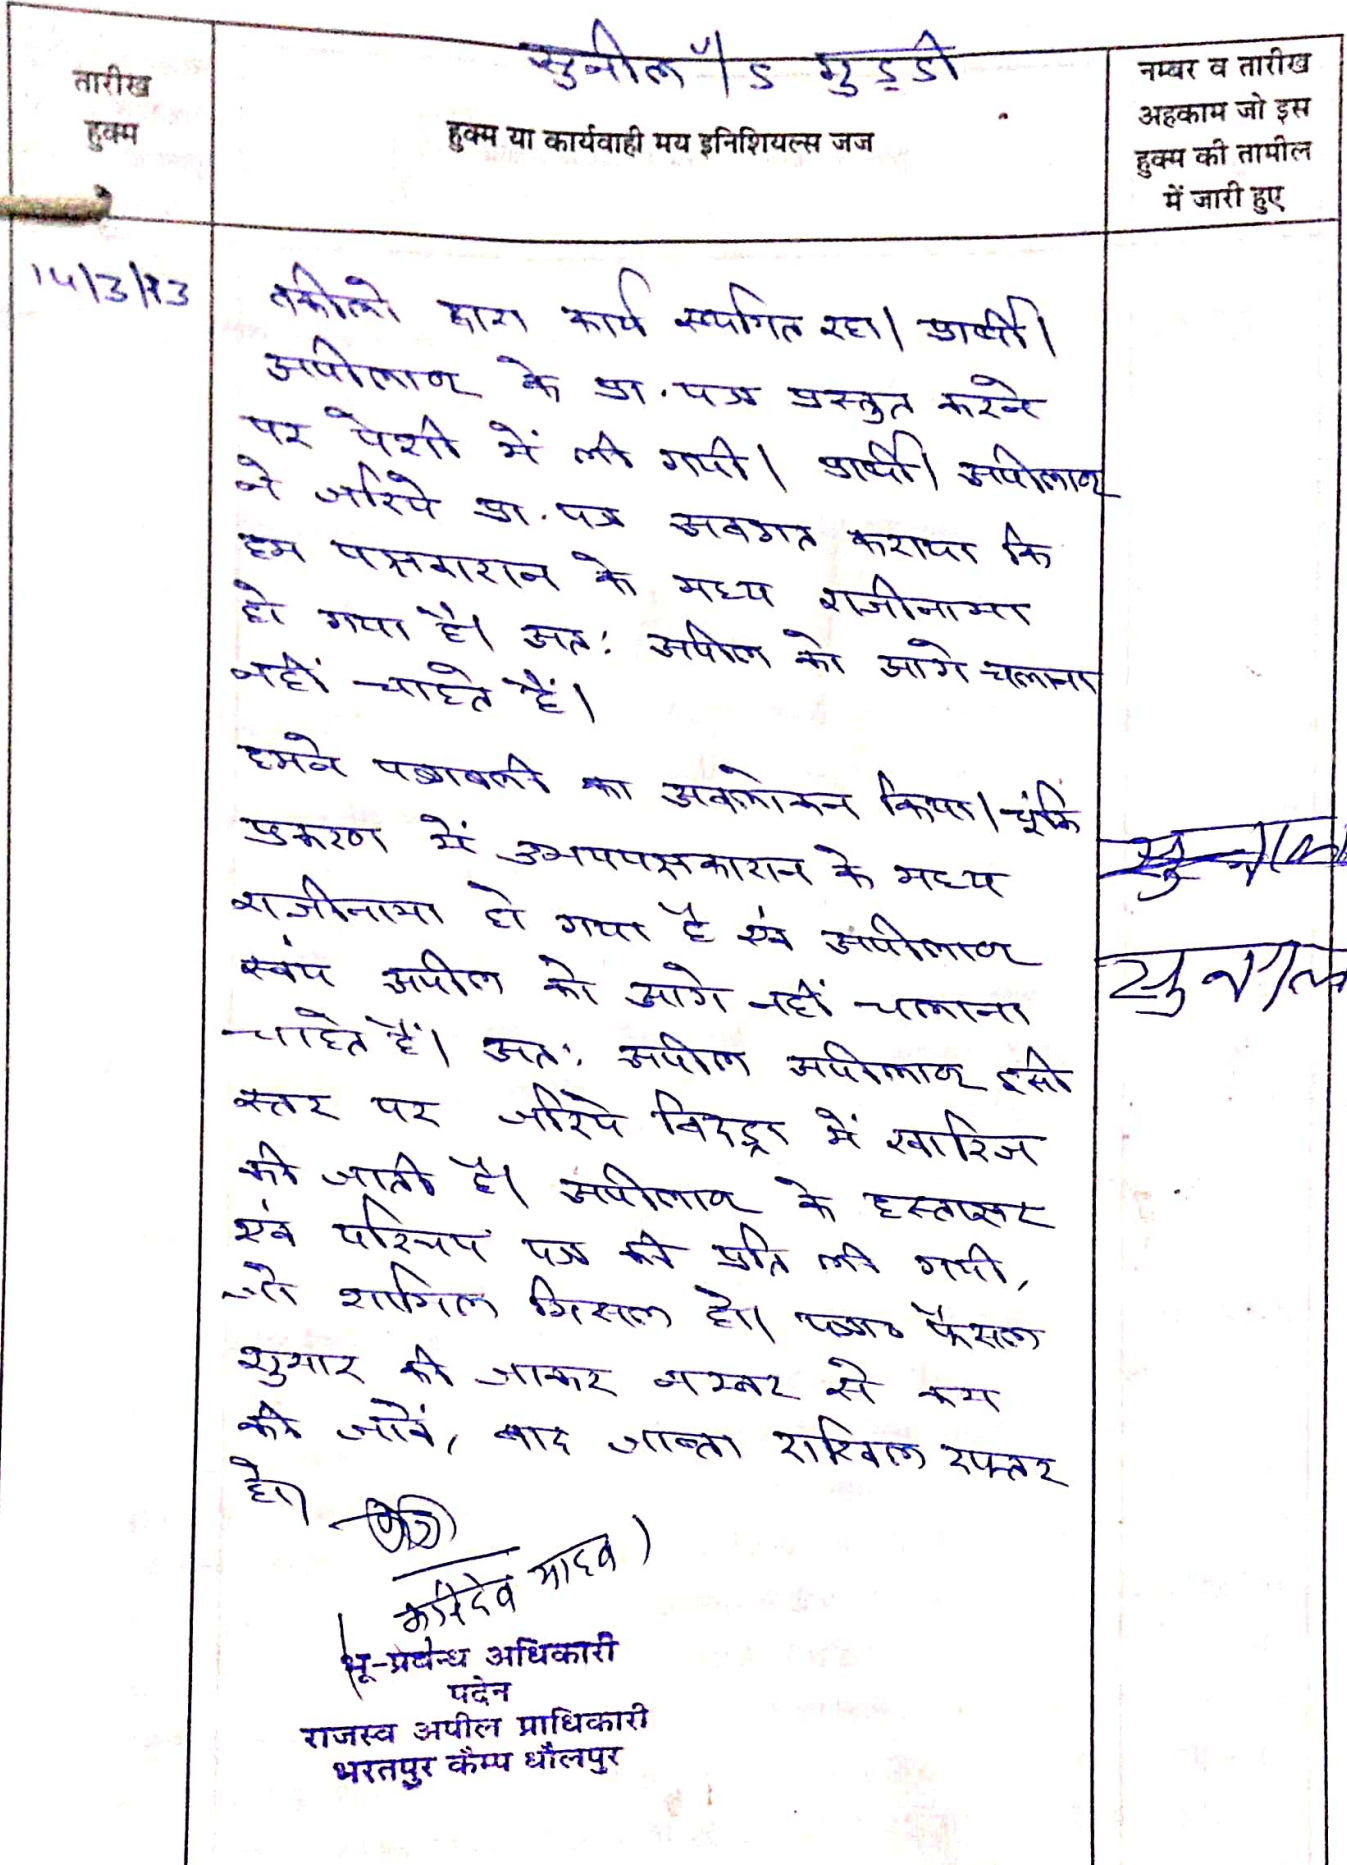 सुनील V/S गुड्डी
तारीख
हुक्म
हुक्म या कार्यवाही मय इनिशियल्स जज
नम्बर व तारीख
अहकाम जो इस
हुक्म की तामील
में जारी हुए
वकीलो द्वारा कार्य स्थगित रहा। प्रार्थी।
अपीलाण्ट के प्रा.पत्र प्रस्तुत करने
पर पेशी में ली गयी। प्रार्थी। अपीलाण्ट
ने जरिये प्रा.पत्र अवगत कराया कि
हम पक्षकारान के मध्य राजीनामा
हो गया है। अत: अपील को आगे चलाना
नहीं चाहते हैं।
हमने पत्रावली का अवलोकन किया। चूंकि
प्रकरण में उभयपक्षकारान के मध्य
राजीनामा हो गया है एंव अपीलाण्ट
स्वंय अपील को आगे नहीं चलाना
चाहते हैं। अत: अपील अपीलाण्ट इसी
स्तर पर जरिये विदड्रा में खारिज
की जाती है। अपीलाण्ट के हस्ताक्षर
एंव परिचय पत्र की प्रति ली गयी,
जो शामिल मिसल हो। पत्रा० फैसल
शुमार की जाकर नम्बर से कम
की जावें, बाद जाब्ता दाखिल दफ्तर
हो।
सुनील
सुनील
यादव)
भू-प्रबन्ध अधिकारी
पदेन
राजस्व अपील प्राधिकारी
भरतपुर कैम्प धौलपुर